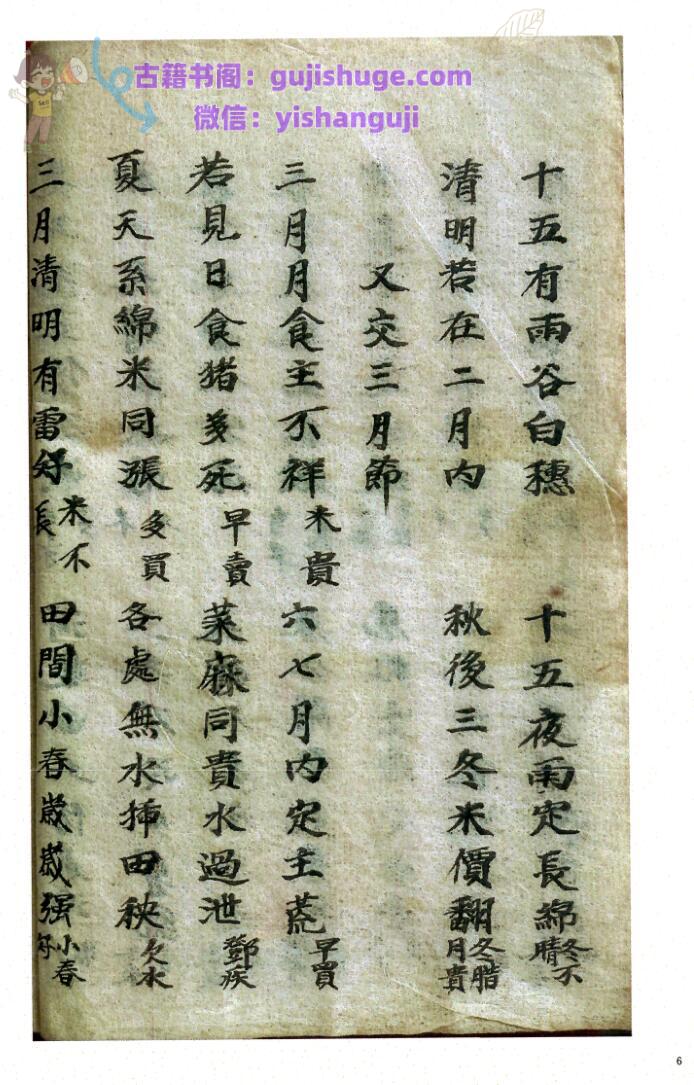 古籍书阁：gujishuge.com
微信：yishanguji
十五有雨谷白穗 十五夜雨定長綿 冬不晴
清明若在二月內 秋後三冬米價翻 冬腊月貴
又交三月節
三月月食主不祥 米貴 六七月內定主荒 早買
若見日食猪多死 早賣 菜麻同貴水過泄
夏天系綿米同漲 多買 各處無水揷田秧 欠水
三月清明有雷好 米不長 田間小春歲歲强 小春好
6